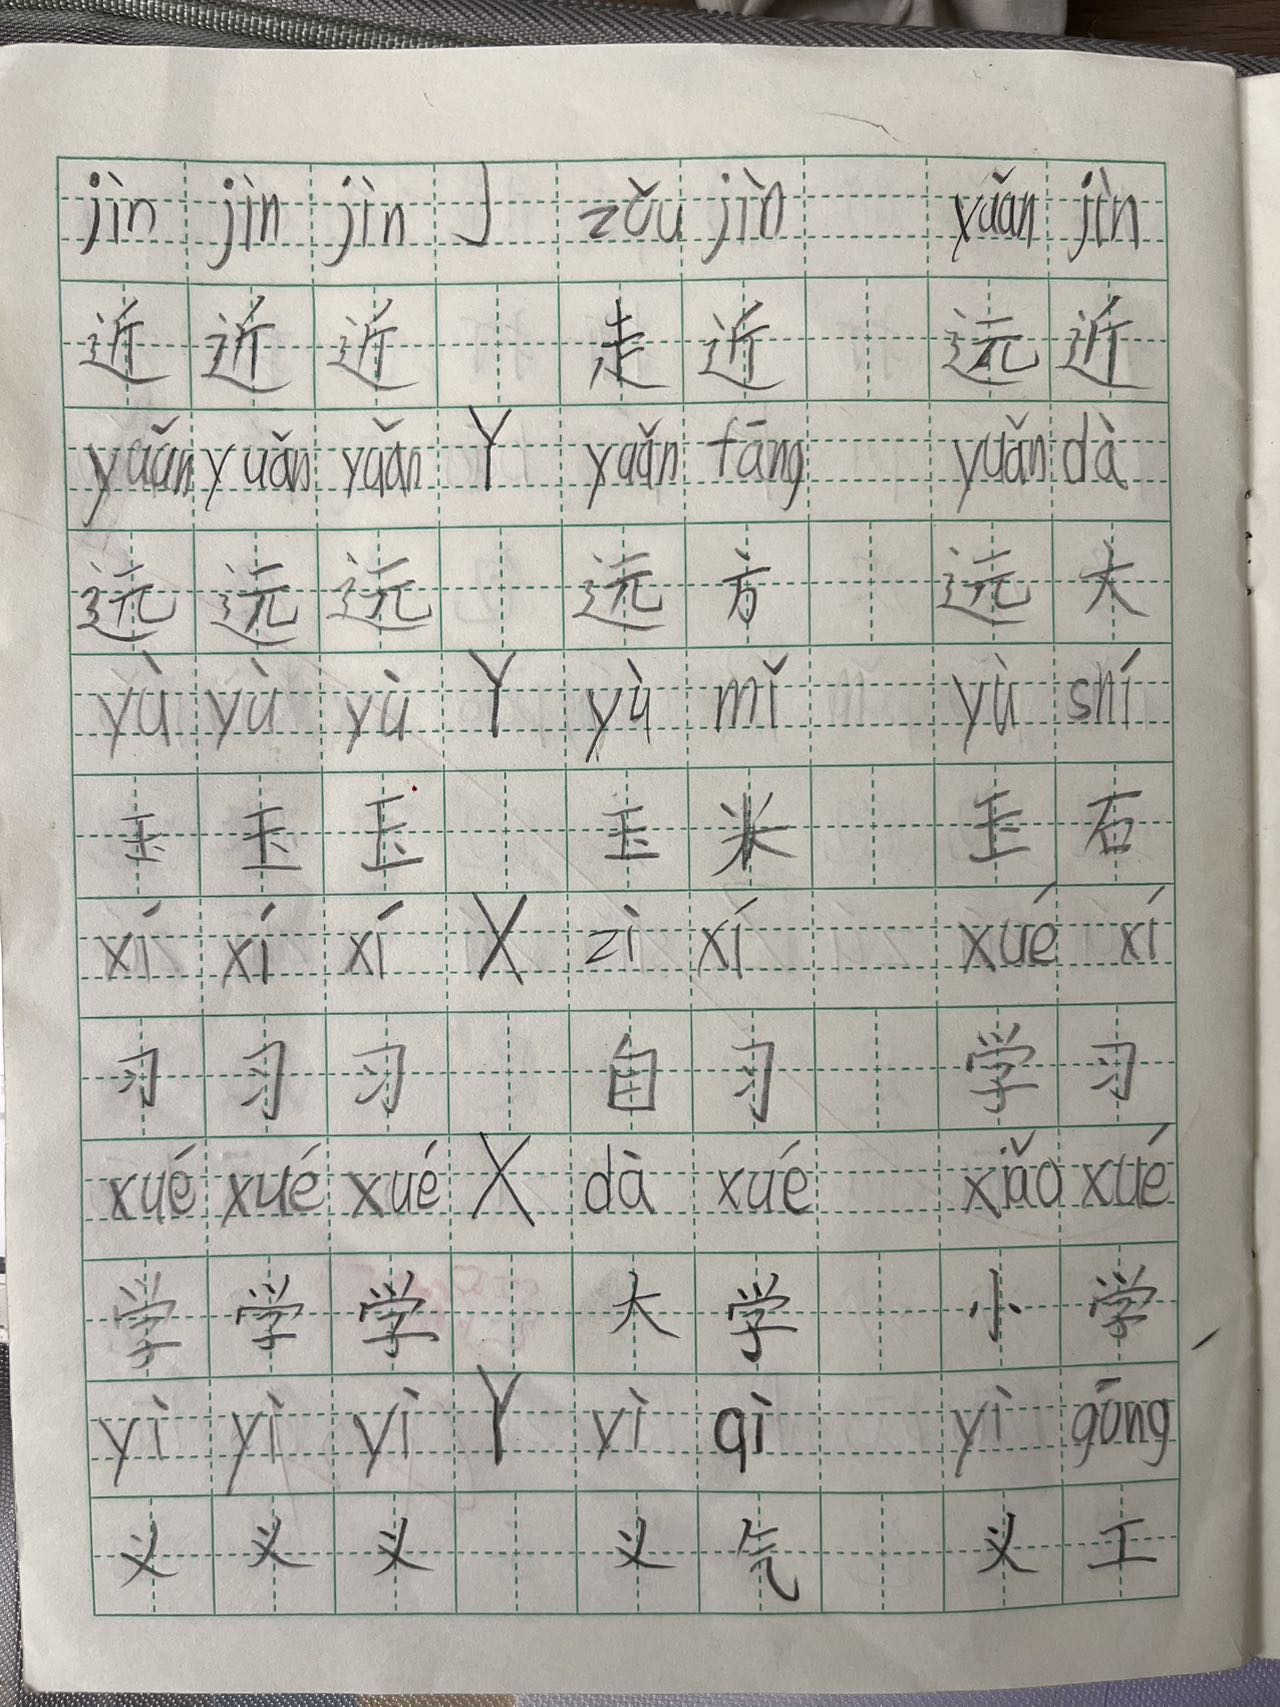 jìn jìn jìn J zǒu jìn yuǎn jìn
近 近 近 走 近 远 近
yuǎn yuǎn yuǎn Y yuǎn fāng yuǎn dà
远 远 远 远 方 远 大
yù yù yù Y yù mǐ yù shí
玉 玉 玉 玉 米 玉 石
xí xí xí X zì xí xué xí
习 习 习 自 习 学 习
xué xué xué X dà xué xiǎo xué
学 学 学 大 学 小 学
yì yì yì Y yì qì yì gōng
义 义 义 义 气 义 工